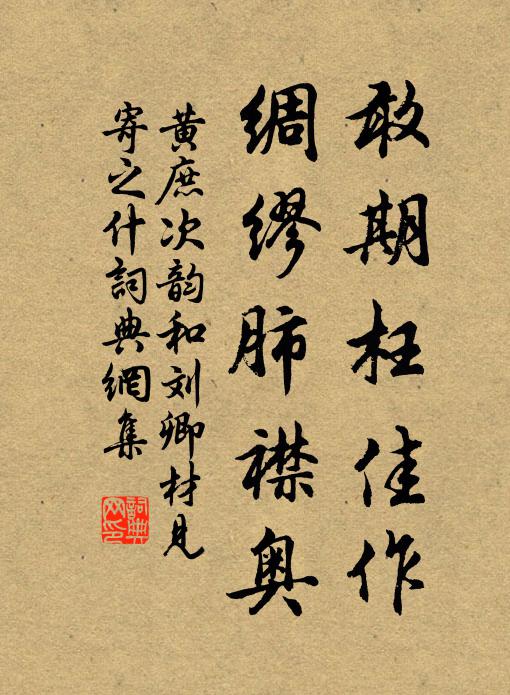 敢期枉佳作
綢繆肺襟奥
黄庶次韵和刘卿材見
寄之什詞典網集
詞典
网印